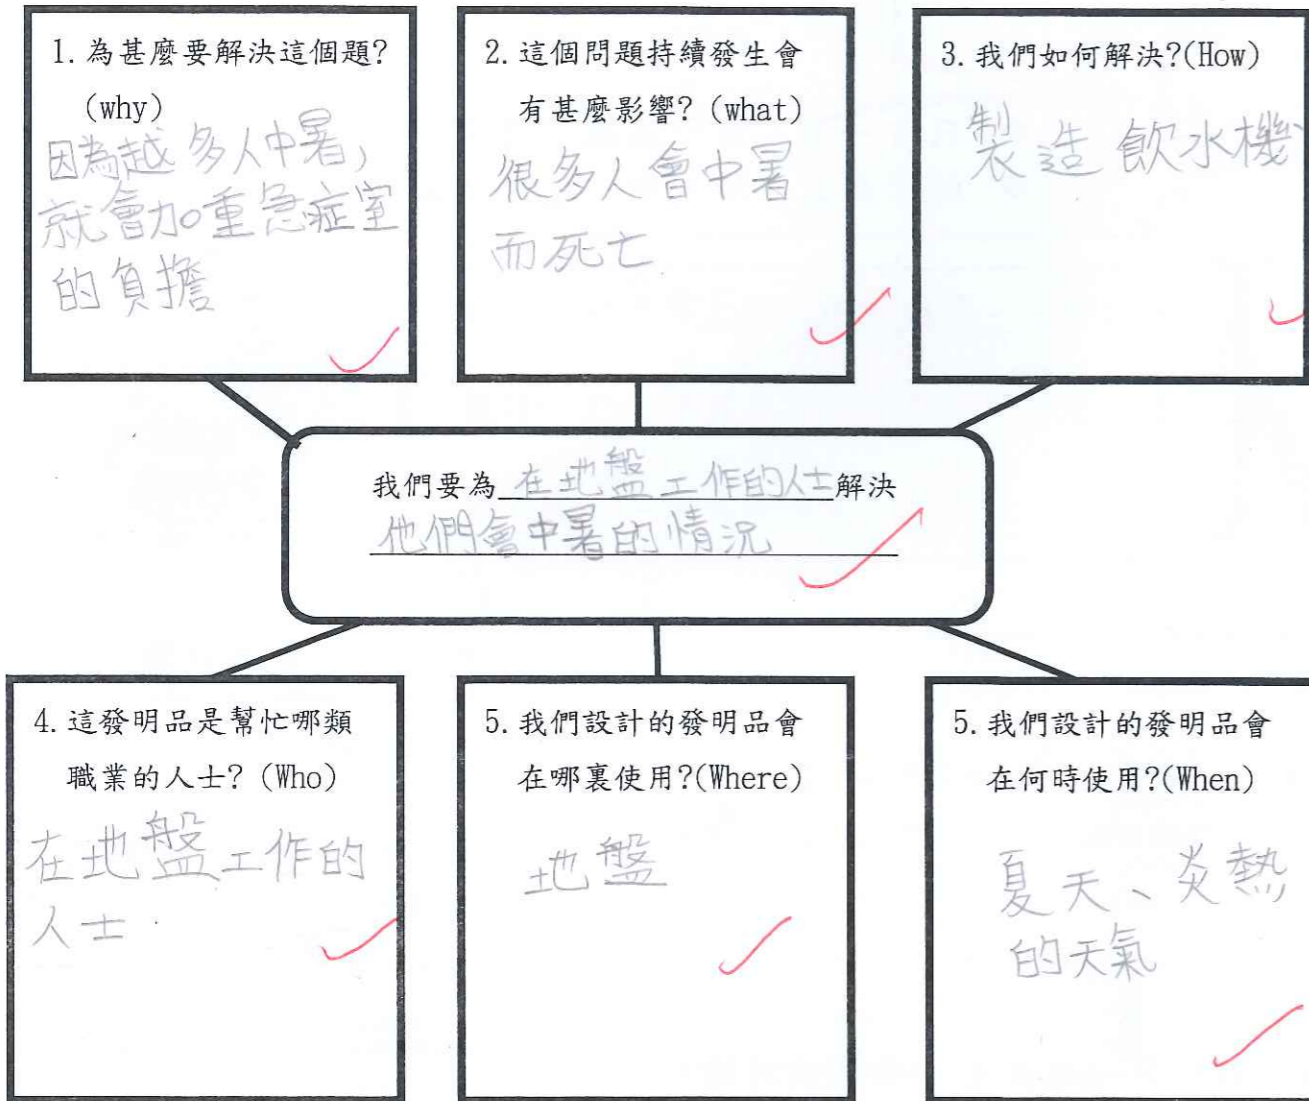 1. 為甚麼要解決這個題?
(why)
因為越多人中暑,
就會加重急症室
的負擔
2. 這個問題持續發生會
有甚麼影響? (what)
很多人會中暑
而死亡
3. 我們如何解決?(How)
製造飲水機
我們要為在地盤工作的人士解決
他們會中暑的情況
4. 這發明品是幫忙哪類
職業的人士? (Who)
在地盤工作的
人士
5. 我們設計的發明品會
在哪裏使用?(Where)
地盤
5. 我們設計的發明品會
在何時使用?(When)
夏天、炎熱
的天氣